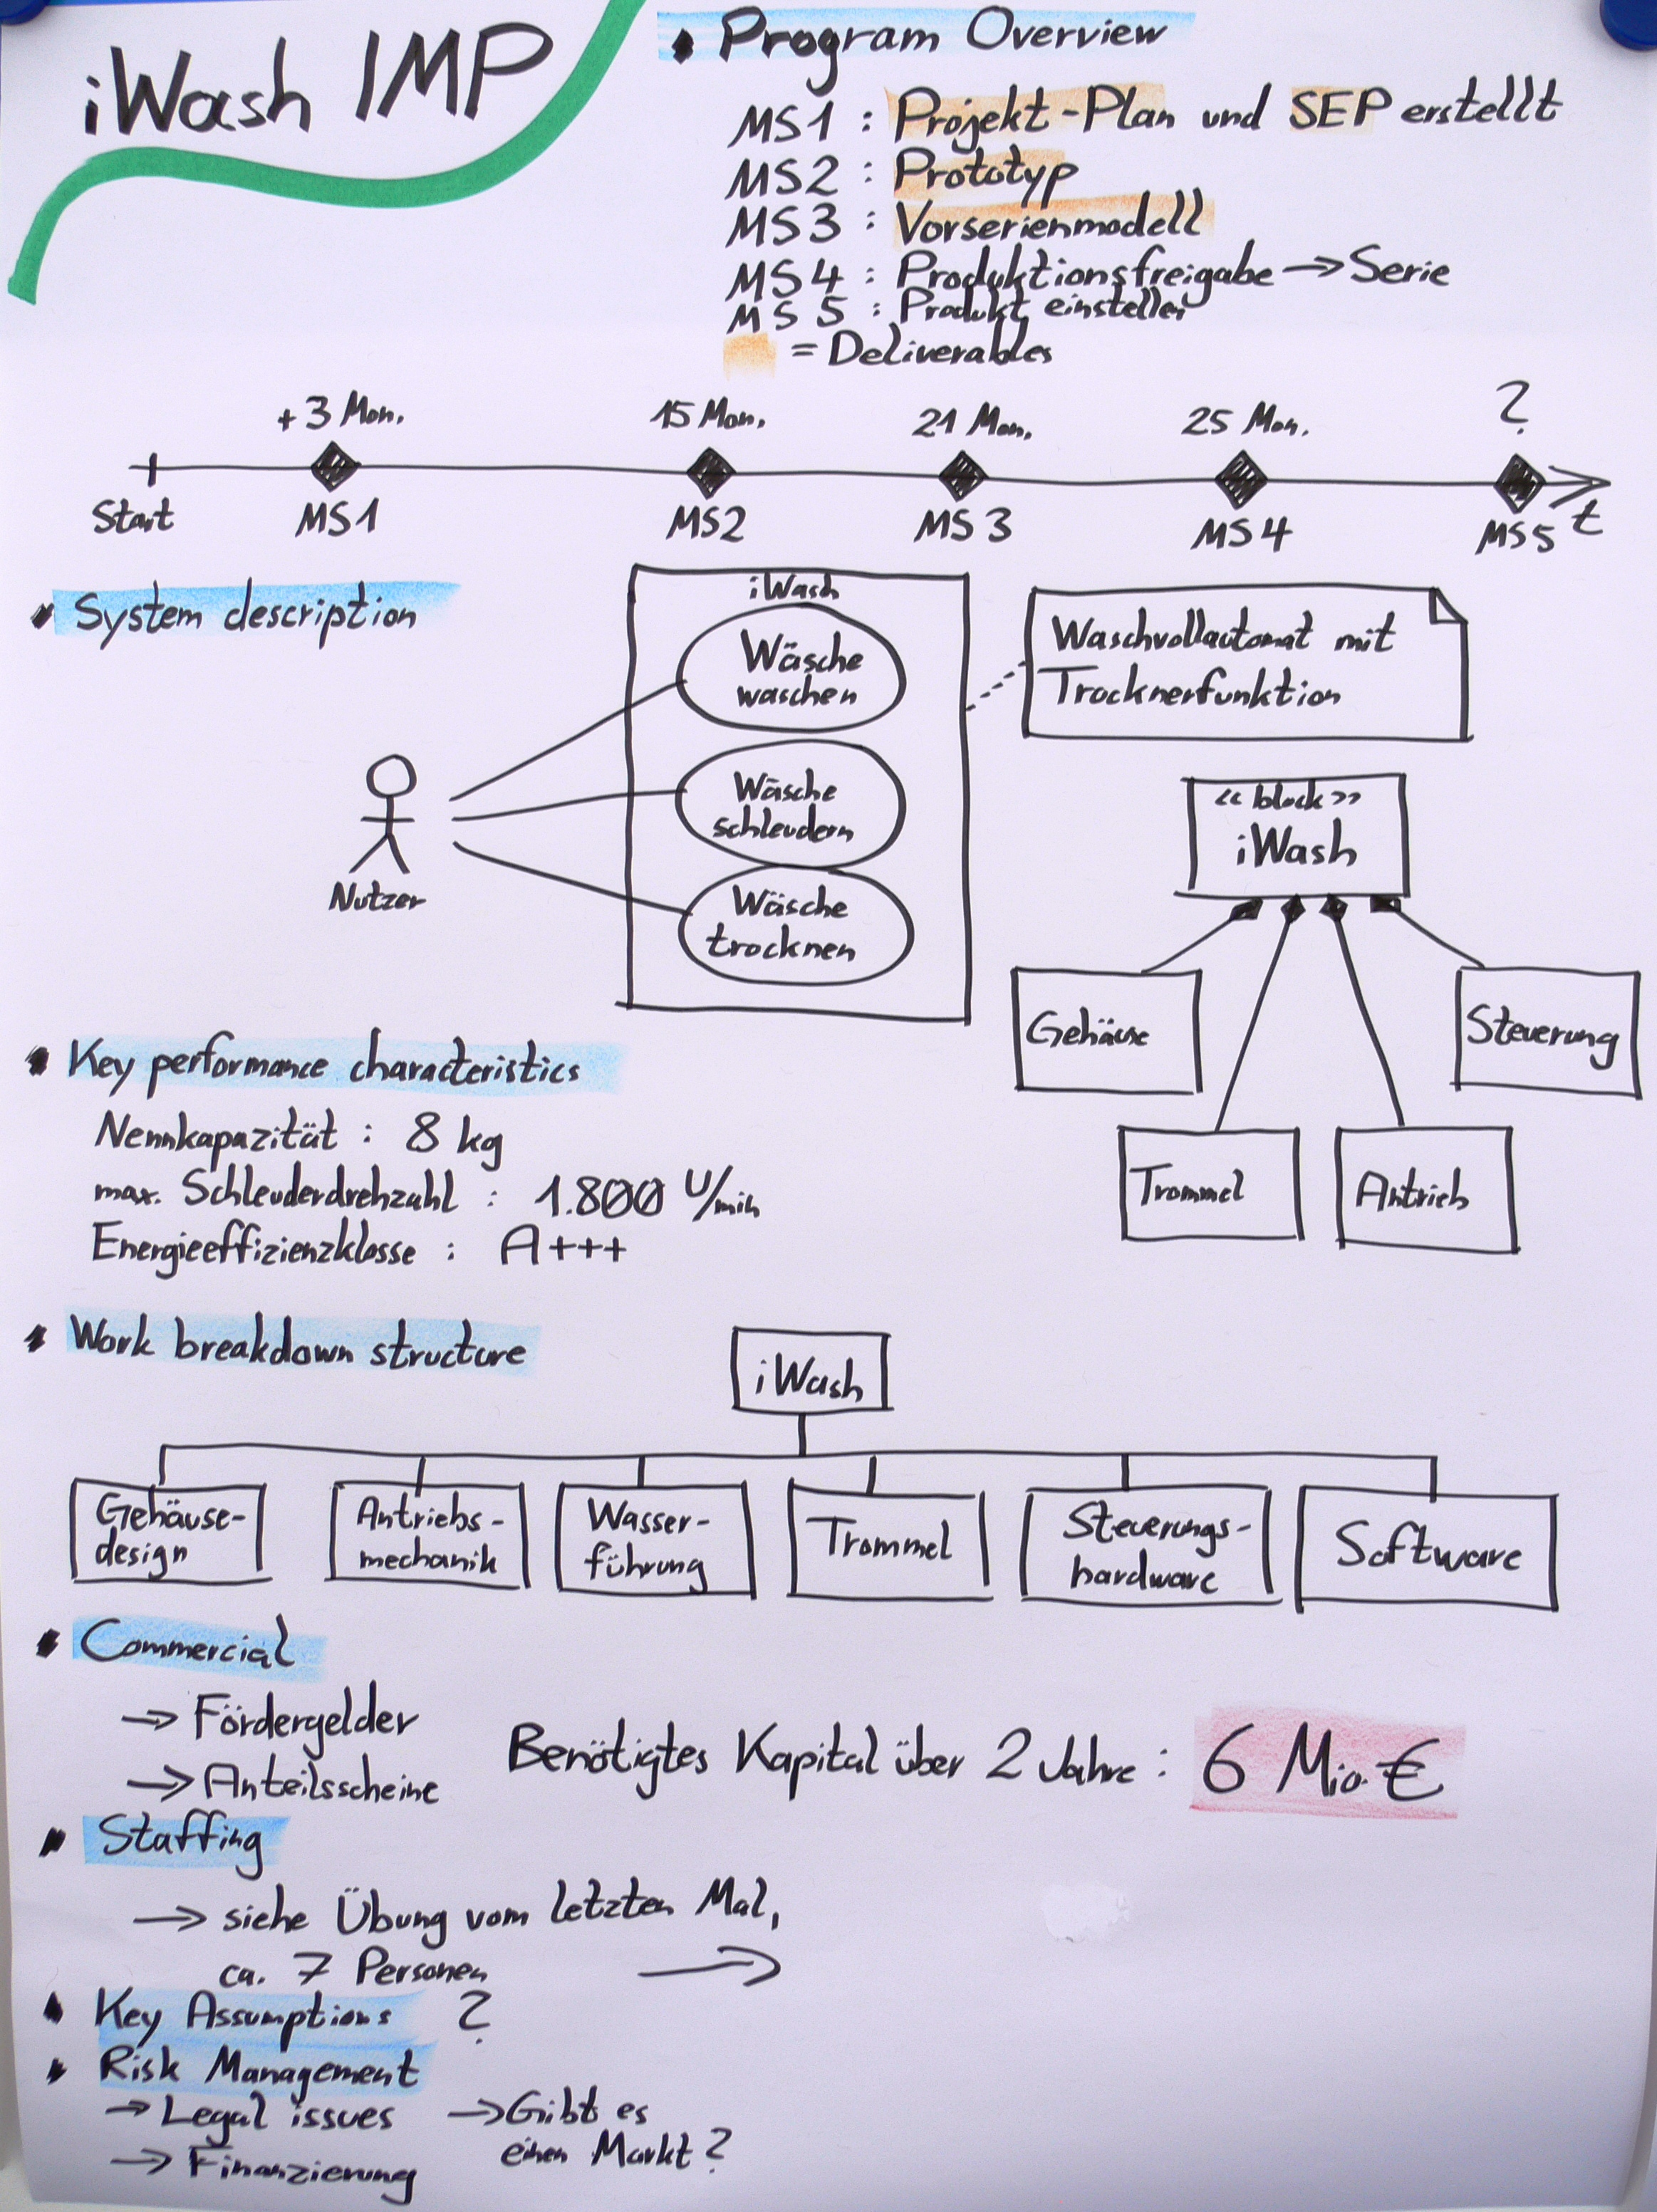 iWash IMP
Program Overview
MS1 : Projekt-Plan und SEP erstellt
MS2 : Prototyp
MS3 : Vorserienmodell
MS4 : Produktionsfreigabe → Serie
MS5 : Produkt einstellen
= Deliverables
+3 Mon. 15 Mon. 21 Mon. 25 Mon. ?
Start MS1 MS2 MS3 MS4 MS5 t
System description
iWash
Wäsche
waschen
Wäsche
schleudern
Wäsche
trocknen
Nutzer
Waschvollautomat mit
Trocknerfunktion
<< block >>
iWash
Gehäuse
Steuerung
Trommel
Antrieb
Key performance characteristics
Nennkapazität : 8 kg
max. Schleuderdrehzahl : 1.800 U/min
Energieeffizienzklasse : A+++
Work breakdown structure
iWash
Gehäuse-
design
Antriebs-
mechanik
Wasser-
führung
Trommel
Steuerungs-
hardware
Software
Commercial
→ Fördergelder
→ Anteilsscheine
Benötigtes Kapital über 2 Jahre : 6 Mio. €
Staffing
→ siehe Übung vom letzten Mal,
ca. 7 Personen →
Key Assumptions ?
Risk Management
→ Legal issues
→ Finanzierung
→ Gibt es
einen Markt ?